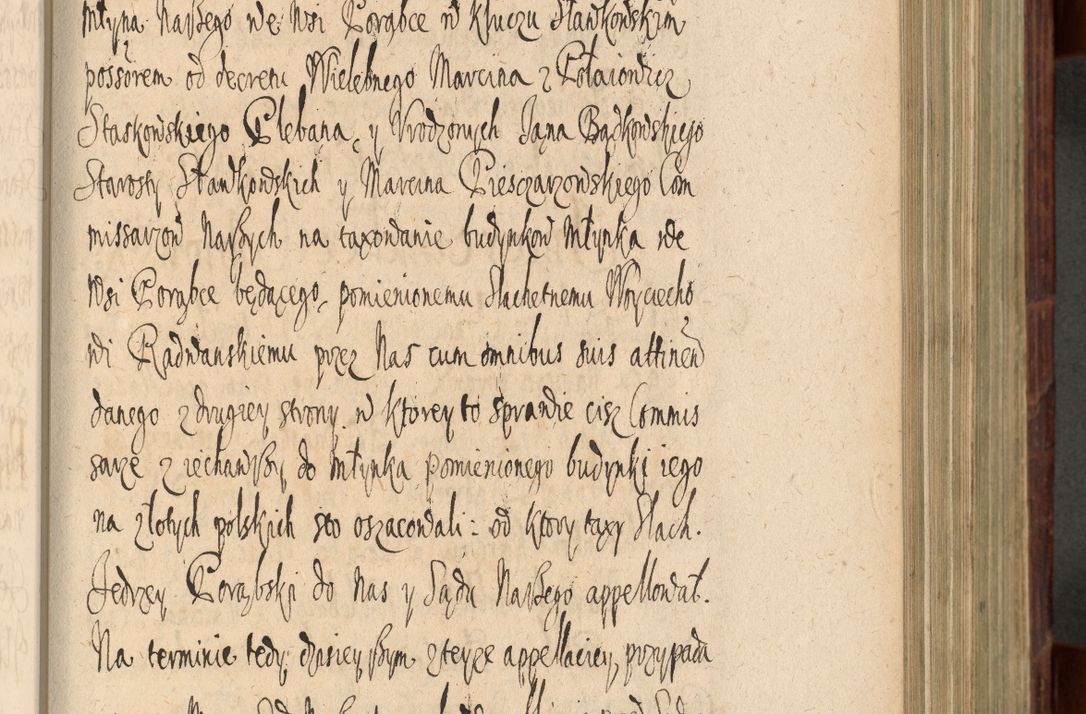 młyna Naszego we wsi Porąbce w Kluczu Sławkowskim
possorem od decretu Wielebnego Marcina z Potaiowicz
Staskowskiego Plebana, y Vrodzonych Jana Bądkowskiego
Starosty Sławkowskich y Marcina Piesczarzowskiego Com
missarzow Naszych na taxowanie budynkow Młynka we
wsi Porąbce będącego, pomienionemu Slachetnemu Woyciecho
wi Radwanskiemu przez Nas cum omnibus suis attinen
danego z drugiey strony. w ktorey to sprawie cisz Commis
sarze ziechawszy do Młynka pomienionego budynki iego
na złotych polskich sto oszacowali: od ktory taxy Slach.
Jędrzey Porąbski do Nas y Sądu Naszego appellował.
Na terminie tedy dzisieyszym z teyze appellaciey przypada